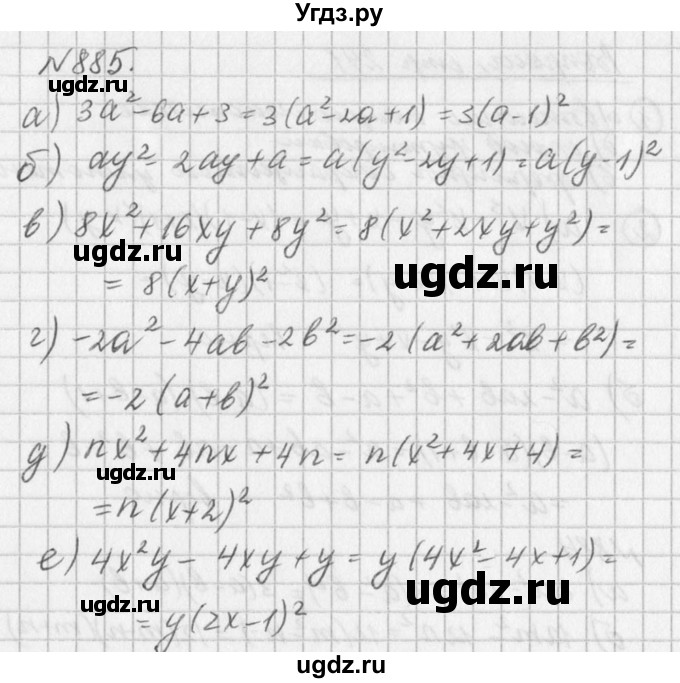 Угдз.ру
№885.
ugdz.ru
ugdz.ru
а) 3a²-6a+3=3(a²-2a+1)=3(a-1)²
б) ay²-2ay+a=a(y²-2y+1)=a(y-1)²
в) 8x²+16xy+8y²=8(x²+2xy+y²)=
= 8(x+y)²
ugdz.ru
ugdz.ru
г) -2a²-4ab-2b²=-2(a²+2ab+b²)=
=-2(a+b)²
д) nx²+4nx+4n= n(x²+4x+4)=
=n(x+2)²
е) 4x²y-4xy+y=y(4x²-4x+1)=
=y(2x-1)²
ugdz.ru
ugdz.ru
ugdz.ru